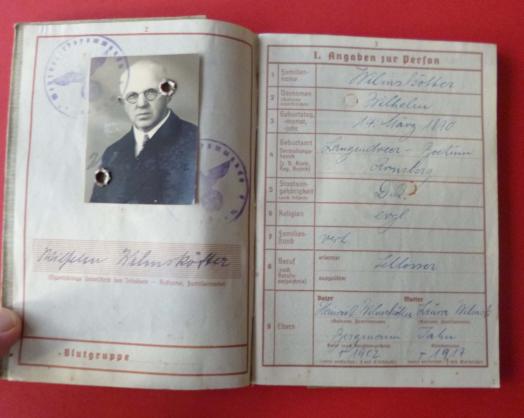 2
Wilhelm Wilmskötter
(Eigenhändige Unterschrift des Inhabers — Rufname, Familienname)
Blutgruppe
3
I. Angaben zur Person
1 Familienname Wilmskötter
2 Vornamen (Rufname unterstreichen) Wilhelm
3 Geburtstag, -monat, -jahr 14. März 1890
4 Geburtsort Verwaltungsbezirk (z. B. Kreis, Reg. Bezirk) Langendreer - Bochum
Arnsberg
5 Staatsangehörigkeit (auch frühere) D.R.
6 Religion evgl
7 Familienstand verh
8 Beruf (nach Berufsverzeichnis) erlernter Schlosser
ausgeübter
9 Eltern
Vater Mutter
Heinrich Wilmskötter
(Rufname, Familienname) (Rufname, Familienname)
Bergmann Jahn
† 1902 † 1917